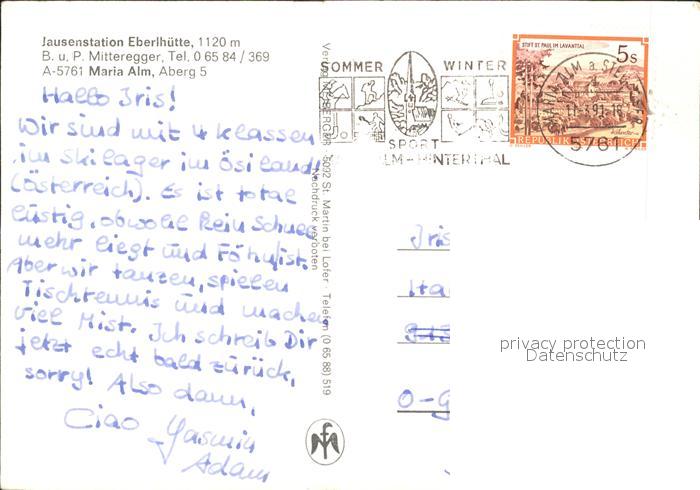 Jausenstation Eberlhütte, 1120 m
B. u. P. Mitteregger, Tel. 0 65 84 / 369
A-5761 Maria Alm, Aberg 5
Hallo Iris!
Wir sind mit 4 klassen
im Skilager im Ösiland
(Österreich). Es ist total
lustig, obwohl kein Schnee
mehr liegt und Föhn ist.
Aber wir tanzen, spielen
Tischtennis und machen
viel Mist. Ich schreib Dir
jetzt echt bald zurück,
sorry! Also dann,
Ciao Yasmin
Adam
5092 St. Martin bei Lofer · Telefon (0 65 88) 519
Nachdruck verboten
SOMMER WINTER
SPORT
ALM-HINTERTHAL
STIFT ST. PAUL IM LAVANTTAL
5s
REPUBLIK
5761
Iris
O-G
privacy protection
Datenschutz